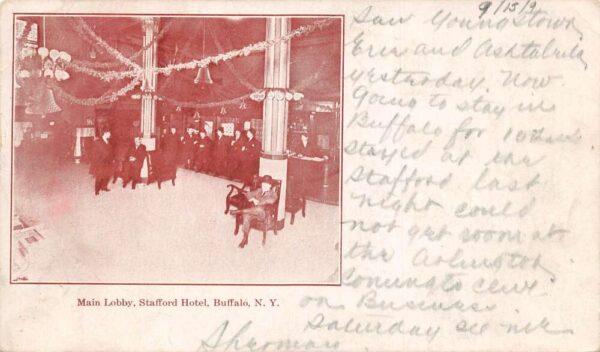 9/15/9
Saw Youngstown
Erie and Ashtabula
yesterday. Now
Going to stay in
Buffalo for
stayed at the
Stafford last
night could
not get room at
the Arlington
on Business.
Saturday see
Sherman
Main Lobby, Stafford Hotel, Buffalo, N. Y.